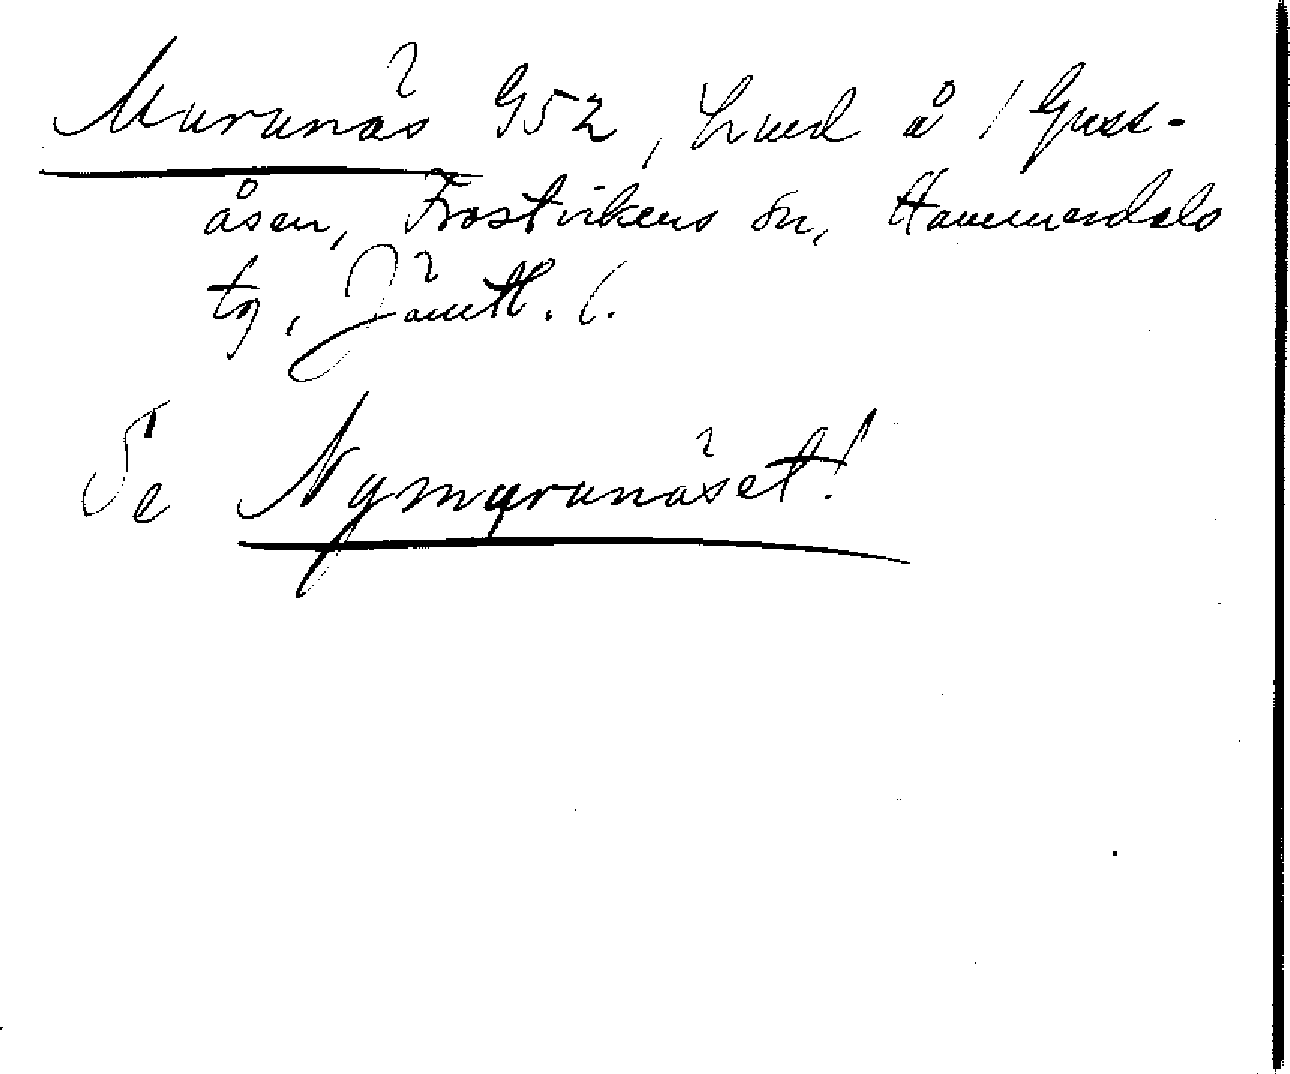 Murunäs G52, Lund å 1 Guss-
åsen, Frostvikens sn, Hammerdals
tg, Jämtl. l.
Se Nymyrunäset!